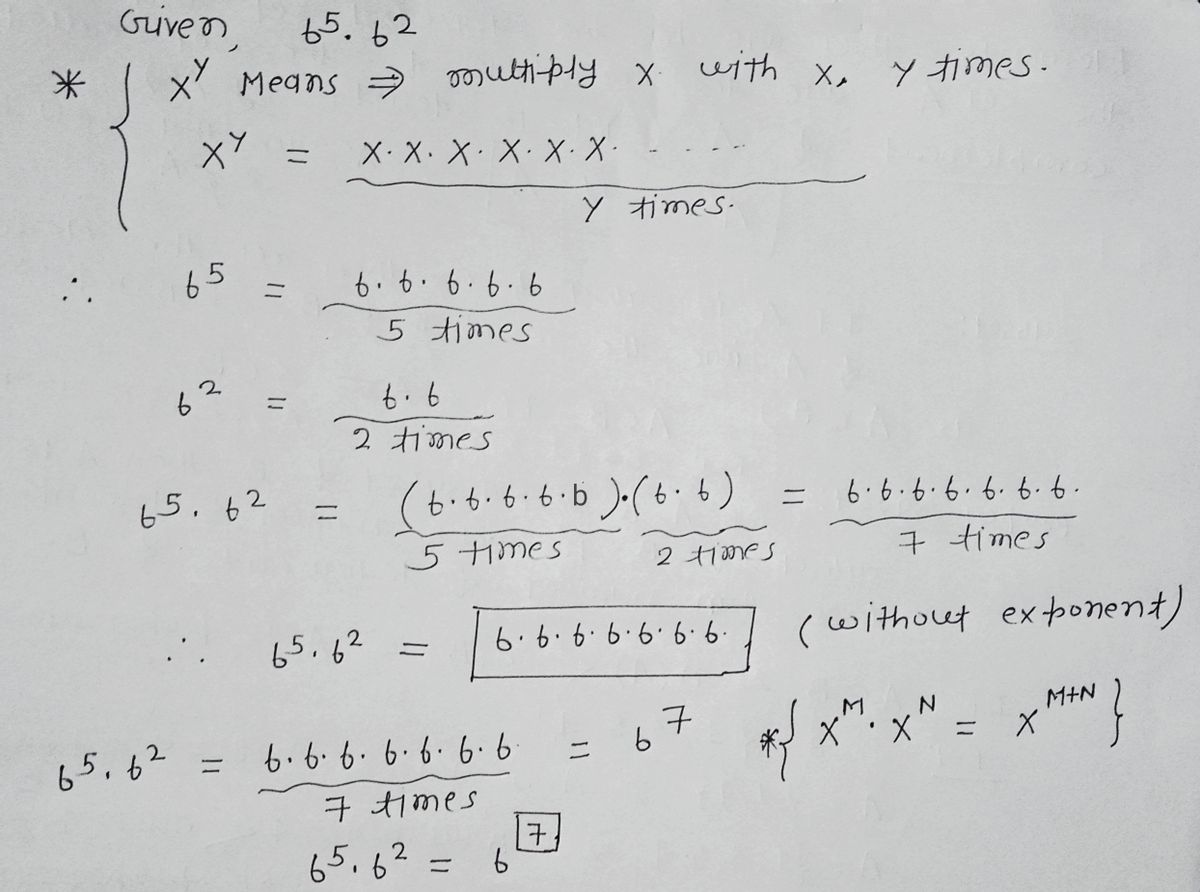 Given, 6⁵. 6²
* { Xʸ Means ⇒ multiply X with X, Y times.
Xʸ = X. X. X. X. X. X. - - - - -
Y times.
∴ 6⁵ = 6. 6. 6. 6. 6
5 times
6² = 6. 6
2 times
6⁵. 6² = (6. 6. 6. 6. b).(6. 6) = 6. 6. 6. 6. 6. 6. 6.
5 times 2 times 7 times
∴ 6⁵. 6² = 6. 6. 6. 6. 6. 6. 6. (without exponent)
6⁵. 6² = 6. 6. 6. 6. 6. 6. 6 = 6⁷ *{ Xᴹ. Xᴺ = Xᴹ⁺ᴺ }
7 times
6⁵. 6² = 6⁷